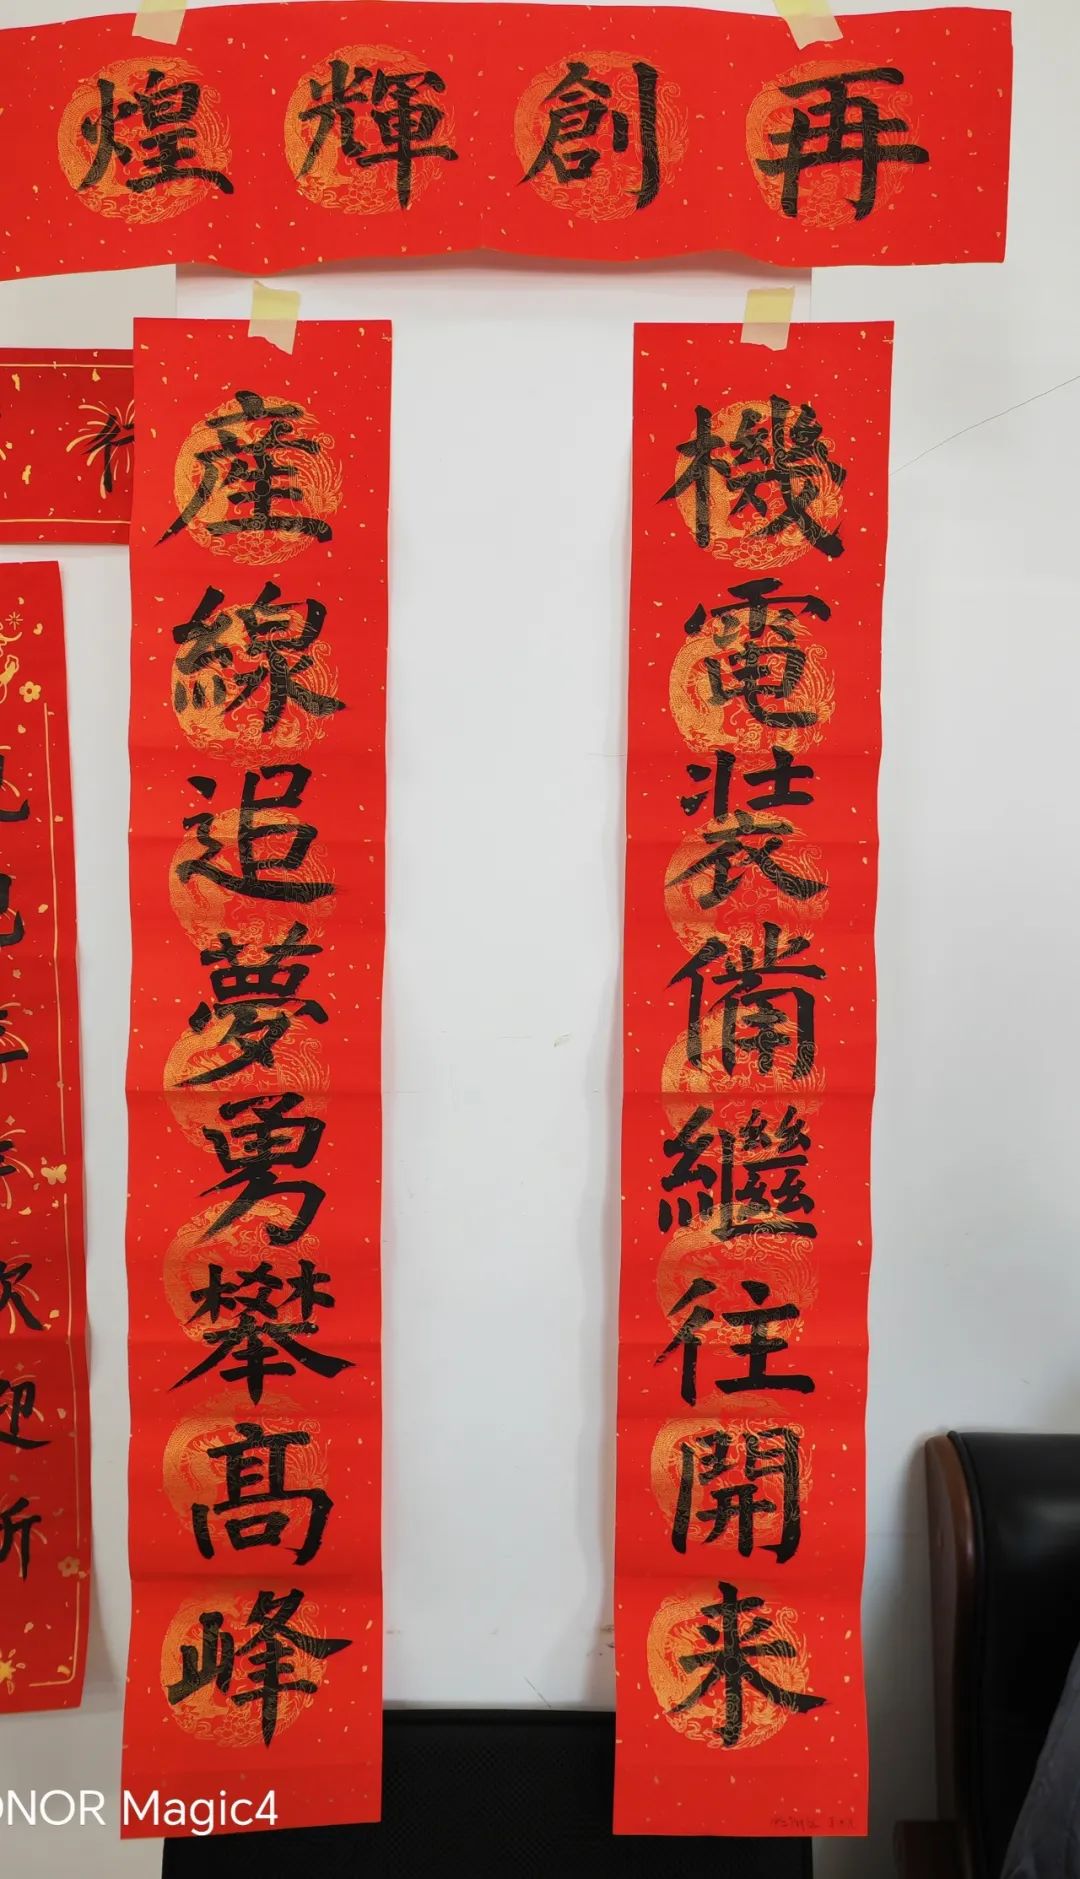 再創輝煌
機電装備繼往開来
産線追夢勇攀髙峰
行
欢
迎
新
NOR Magic4